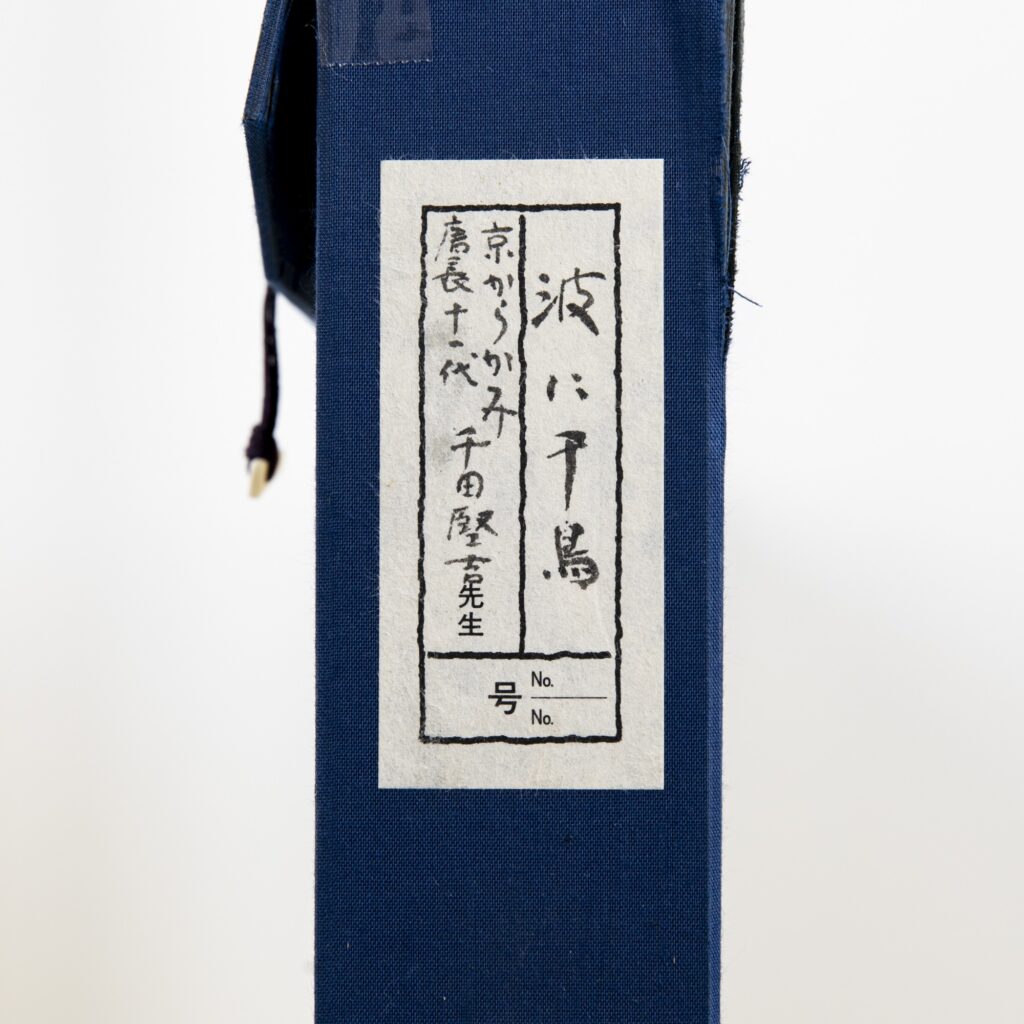 波に千鳥
京からかみ
唐長十一代 千田堅吉先生
号
No.
No.